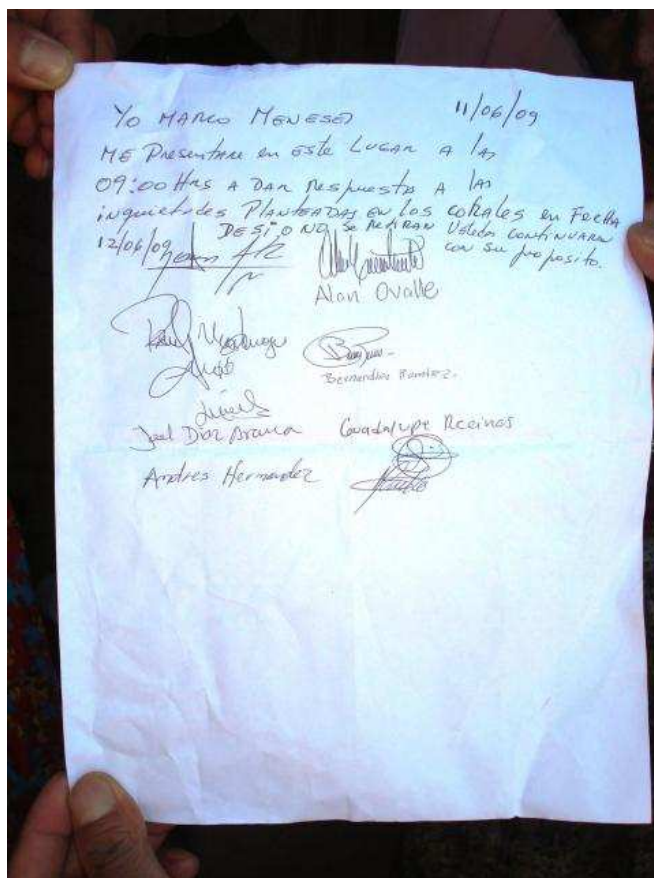 11/06/09
YO MARCO MENESES
ME Presentare en este LUGAR A las
09:00 Hrs A DAR Respuesta A las
inquietudes PLANTEADAS EN LOS en Fecha
DE SI O NO Se RETIRAN Ustedes CONTINUARA
12/06/09
con su proposito.
Alan Ovalle
Bernardino Ramirez.
Joel Diaz
Guadalupe Recinos
Andres Hernandez